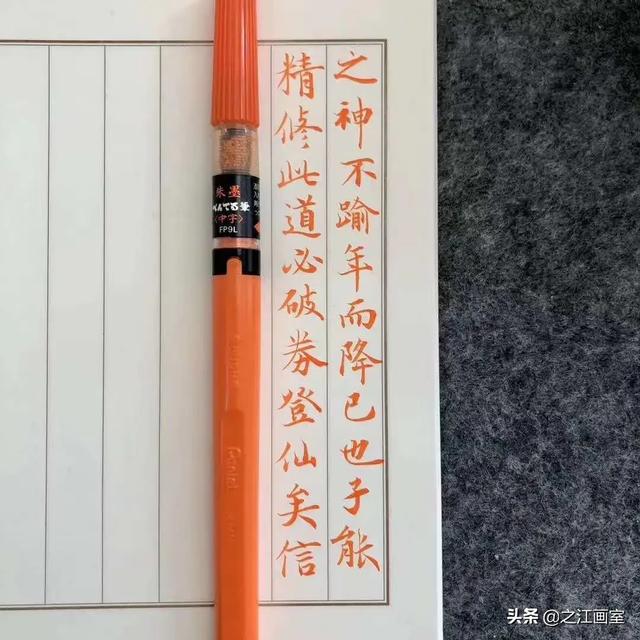 之神不踰年而降已也子能
精修此道必破券登仙矣信
朱墨
ぺんてる筆
〈中字〉
FP9L
Pentel
头条@之江画室